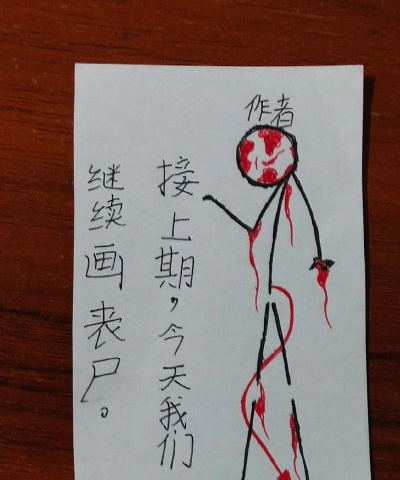 作者
接上期,今天我们
继续画丧尸。